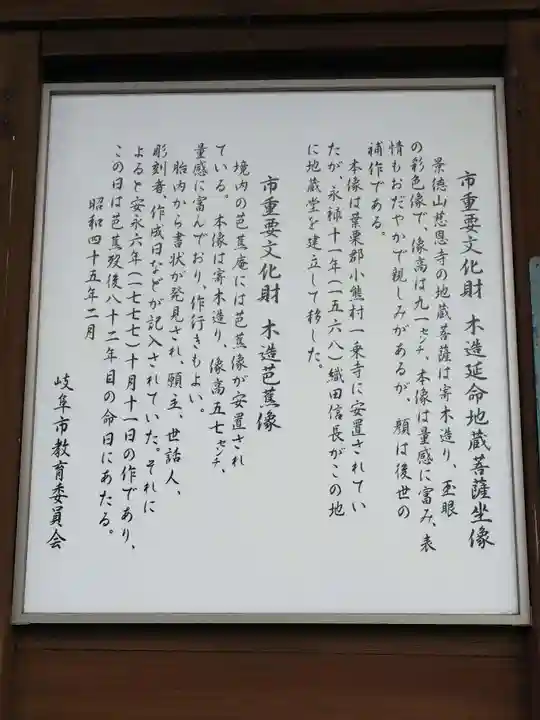 市重要文化財 木造延命地蔵菩薩坐像
景徳山慈恩寺の地蔵菩薩は寄木造り、玉眼
の彩色像で、像高は九一センチ、本像は量感に富み、表
情もおだやかで親しみがあるが、顔は後世の
補作である。
本像は葉栗郡小熊村一乗寺に安置されてい
たが、永禄十一年(一五六八)織田信長がこの地
に地蔵堂を建立して移した。
市重要文化財 木造芭蕉像
境内の芭蕉庵には芭蕉像が安置され
ている。本像は寄木造り、像高五七センチ、
量感に富んでおり、作行きもよい。
胎内から書状が発見され、願主、世話人、
彫刻者、作成日などが記入されていた。それに
よると安永六年(一七七七)十月十一日の作であり、
この日は芭蕉歿後八十二年目の命日にあたる。
昭和四十五年二月
岐阜市教育委員会